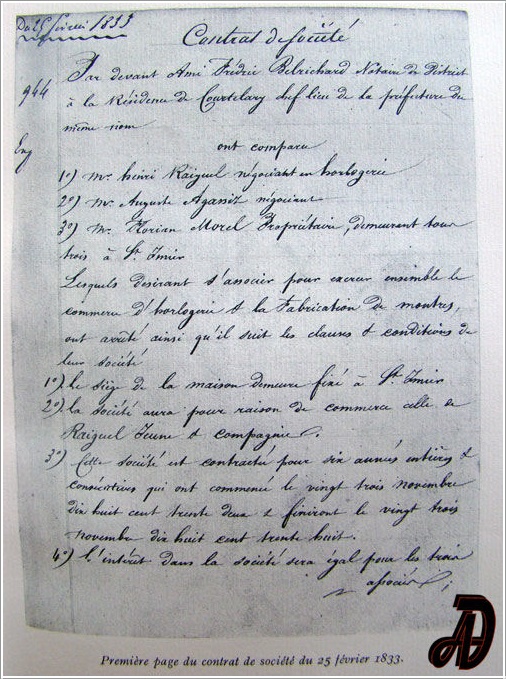 Du 25 février 1833
Contrat de Société
944
Par devant Ami Frédric Belrichard Notaire du District
à la Résidence de Courtelary chef lieu de la préfecture du
même nom
Eng
ont comparu
1º) Mr henri Raiguel négociant en horlogerie
2º) Mr Auguste Agassiz négociant
3º) Mr Florian Morel Propriétaire, demeurant tous
trois à St Imier
Lesquels désirant s'associer pour exercer ensemble le
commerce d'horlogerie & la Fabrication de montres,
ont arrêté ainsi qu'il suit les clauses & conditions de
leur société
1º) le siège de la maison demeure fixé à St Imier
2º) la société aura pour raison de commerce celle de
Raiguel Jeune & compagnie.
3º) Cette société est contractée pour six années entières &
consécutives qui ont commencé le vingt trois novembre
dix huit cent trente deux & finiront le vingt trois
novembre dix huit cent trente huit.
4º) l'intérêt dans la société sera égal pour les trois
associés ;
Première page du contrat de société du 25 février 1833.